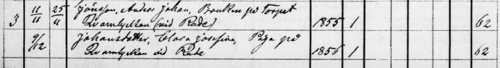 3 11/11 25/11 Jönsson, Anders Johan, Brukare på Torpet
Qvarnlyckan (vid Rude) 1855 1 62
9/12 Johansdotter, Clara Josefina, Piga på
Qvarnlyckan vid Rude 1856 1 62